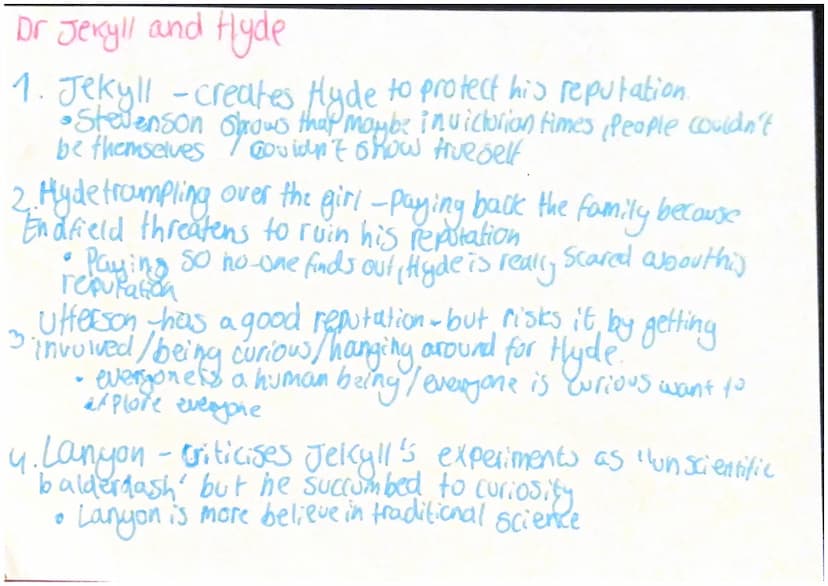 Dr Jekyll and Hyde
1. Jekyll - creates Hyde to protect his reputation.
• Stevenson shows that maybe in victorian times, People couldn't
be themselves / couldn't show trueself
2. Hyde trampling over the girl - paying back the family because
Endfield threatens to ruin his reputation
• Paying so no-one finds out, Hyde is really scared about his
reputation
Utterson - has a good reputation - but risks it by getting
3 involved/being curious/hanging around for Hyde.
• everyone is a human being/everyone is curious want to
explore everyone
4. Lanyon - criticises Jekyll's experiments as "unscientific
balderdash' but he succumbed to curiosity
• Lanyon is more believe in traditional science